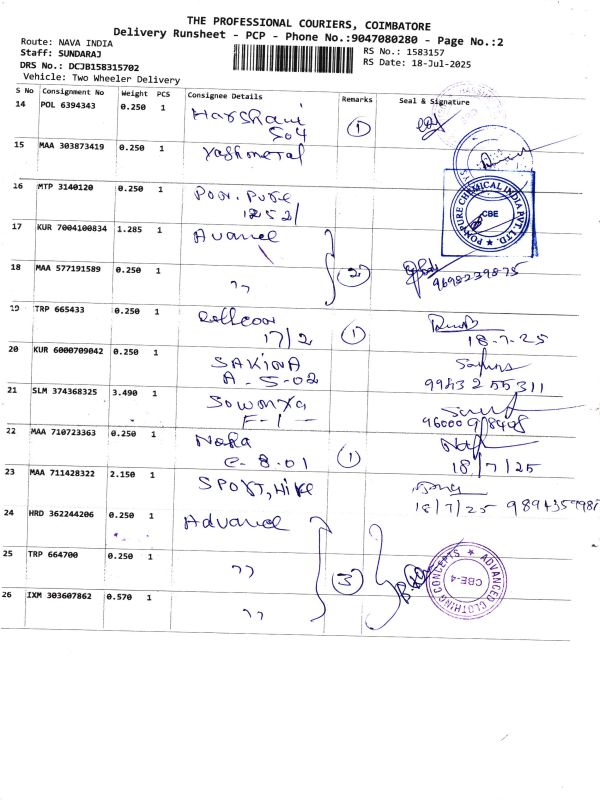 THE PROFESSIONAL COURIERS, COIMBATORE
Delivery Runsheet - PCP - Phone No.:9047080280 - Page No.:2
Route: NAVA INDIA
Staff: SUNDARAJ
DRS No.: DCJB158315702
Vehicle: Two Wheeler Delivery
RS No.: 1583157
RS Date: 18-Jul-2025
S No Consignment No Weight PCS Consignee Details Remarks Seal & Signature
14 POL 6394343 0.250 1 Harshani 1
504
15 MAA 303873419 0.250 1 Yashmetal
16 MTP 3140120 0.250 1
PONPURE CHEMICAL INDIA PVT. LTD. ★
CBE
17 KUR 7004100834 1.285 1 2
18 MAA 577191589 0.250 1 ,,
9698239875
19 TRP 665433 0.250 1 1
17/2 18-7-25
20 KUR 6000709042 0.250 1 SAKINA
A-S-02 99432 55311
21 SLM 374368325 3.490 1
F-1-
22 MAA 710723363 0.250 1 1
C-8.01 18/7/25
23 MAA 711428322 2.150 1 SPORT, HIKE
18/7/25
24 HRD 362244206 0.250 1 Advance
25 TRP 664700 0.250 1 ,, 3
ADVANCED CLOTHING CONCEPTS ★
CBE-4
26 IXM 303607862 0.570 1 ,,